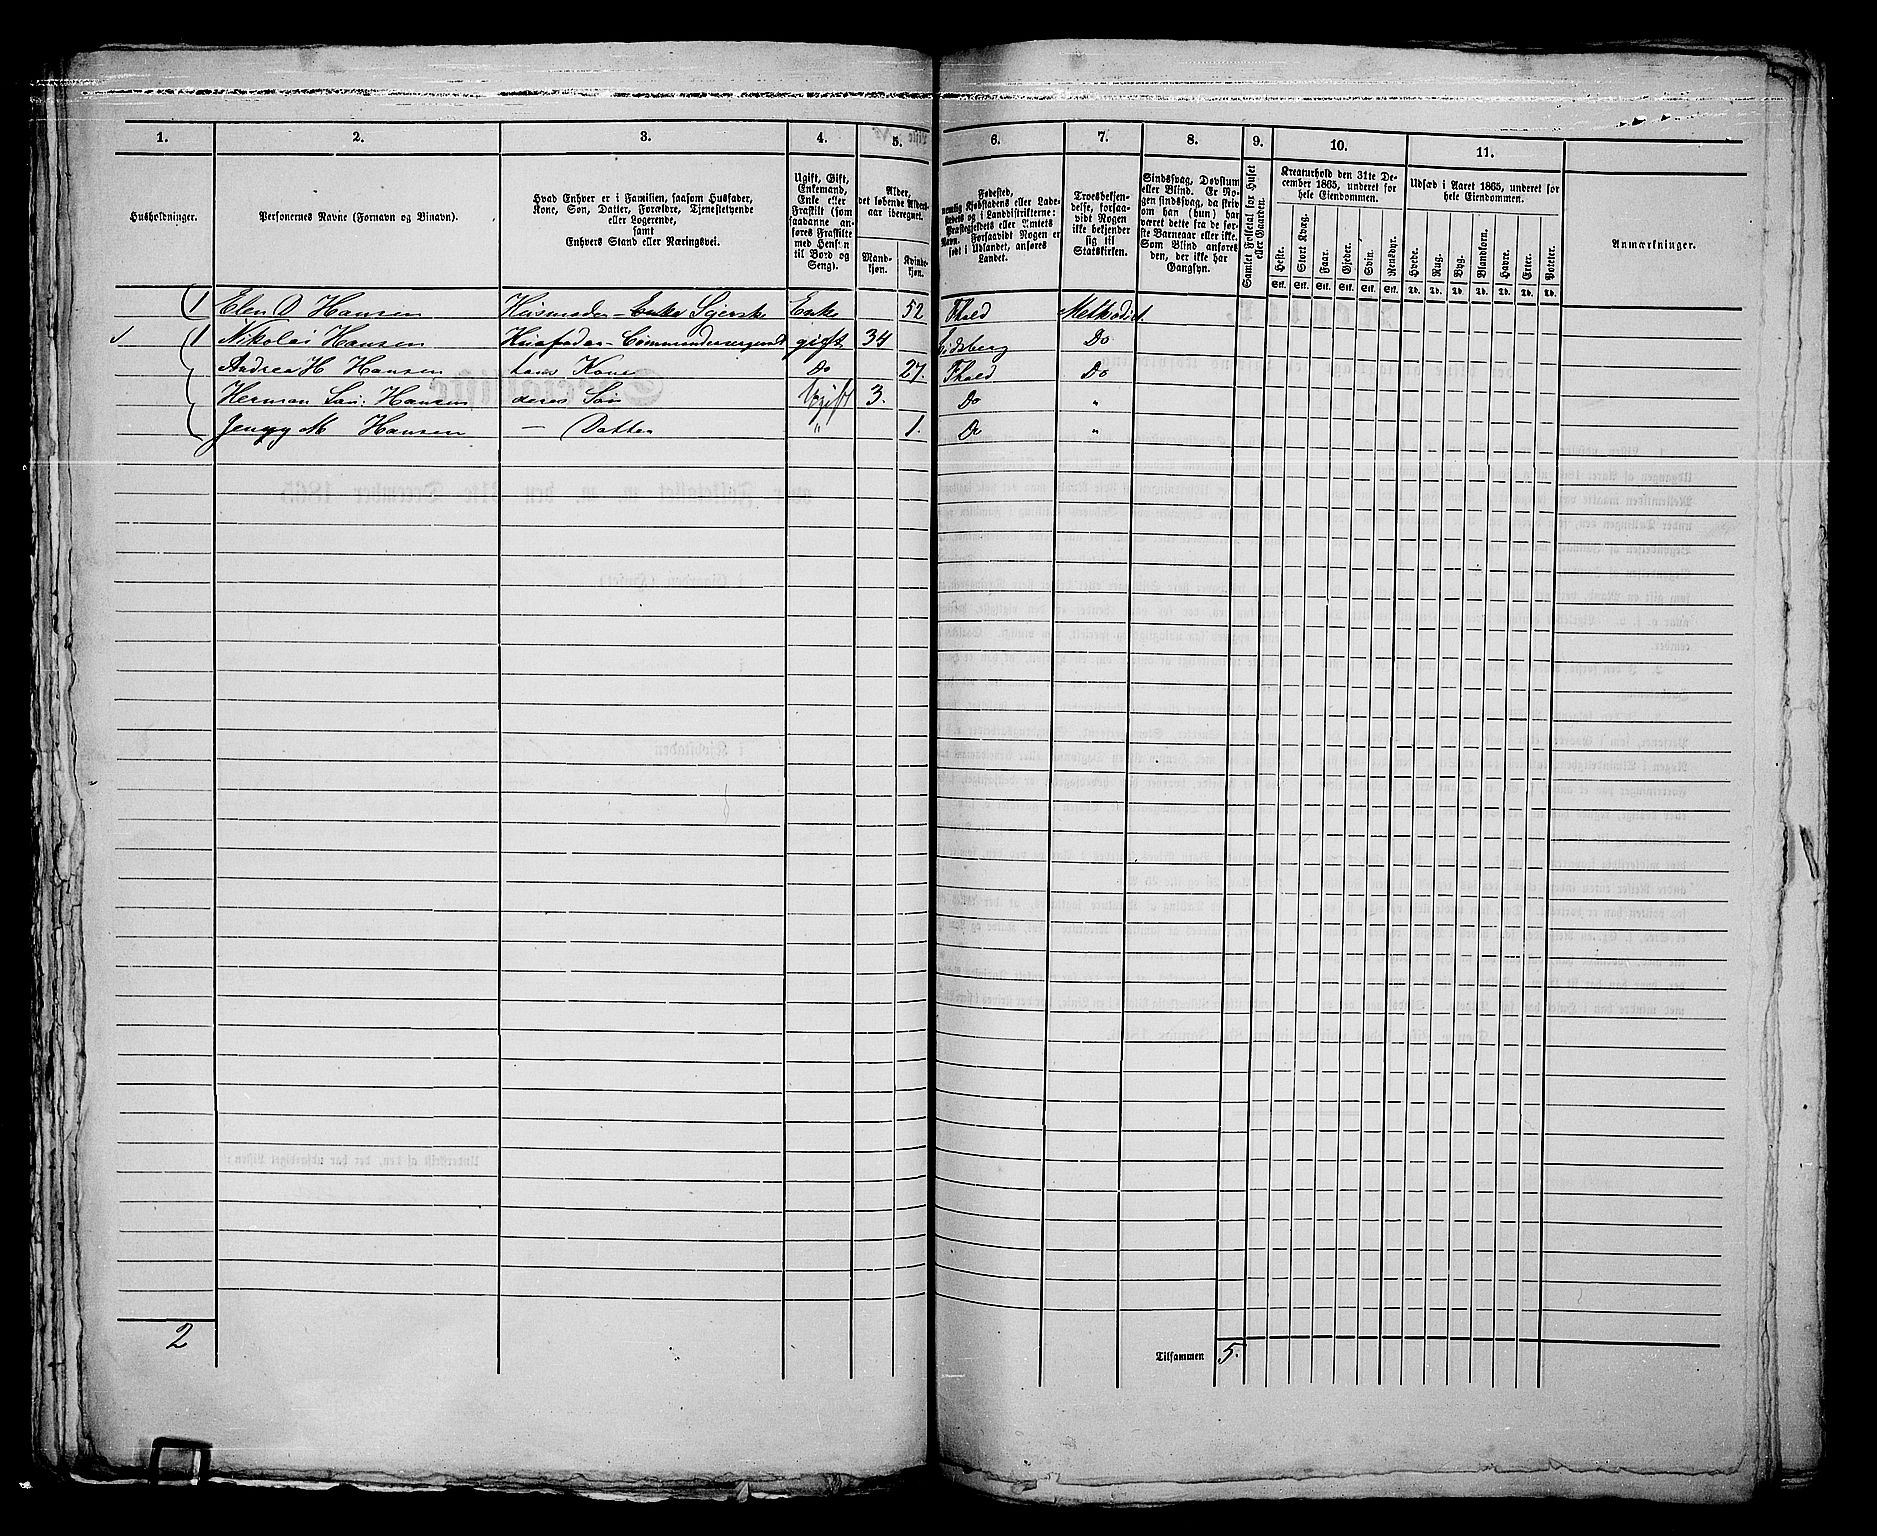 1.
2.
3.
4.
5.
6.
7.
8.
9.
10.
11.
Husholdninger.
Personernes Navne (Fornavn og Binavn).
Hvad Enhver er i Familien, saasom Husfader,
Kone, Søn, Datter, Forældre, Tjenestetyende
eller Logerende,
samt
Enhvers Stand eller Næringsvei.
Ugift, Gift,
Enkemand,
Enke eller
Fraskilt (som
saadanne an-
føres Fraskilte
med Hensyn
til Bord og
Seng).
Alder,
det løbende Alders-
aar iberegnet.
Mand-
kjøn.
Kvinde-
kjøn.
Fødested,
nemlig Kjøbstadens eller Lade-
stedets og i Landdistrikterne:
Præstegjeldets eller Amtets
Navn. Forsaavidt Nogen er
født i Udlandet, anføres
Landet.
Troesbekjen-
delse, forsaa-
vidt Nogen
ikke bekjender
sig til
Statskirken.
Sindssvag, Døvstum
eller Blind. Er No-
gen sindssvag, da skriv
om han (hun) har
været dette fra de før-
ste Barneaar eller ikke.
Som Blind anføres
den, der ikke har
Gangsyn.
Samlet Folketal for Huset
eller Gaarden.
Kreaturhold den 31te De-
cember 1865, underet for
hele Eiendommen.
Heste.
Stort Kvæg.
Faar.
Gjeder.
Svin.
Rensdyr.
Stk. Stk. Stk. Stk. Stk. Stk.
Udsæd i Aaret 1865, underet for
hele Eiendommen.
Hvede.
Rug.
Byg.
Blandkorn.
Havre.
Erter.
Poteter.
Td. Td. Td. Td. Td. Td. Td.
Anmærkninger.
1 Elen D Hansen Husmoder - Enke Enke 52 Fhald Methodist.
1 Nikolai Hansen Husfader - Commandersergent gift 34 Eidsberg Do
Andrea H Hansen hans Kone Do 27. Fhald Do
Herman Hansen deres Søn Ugift 3. Do "
Jenny M Hansen — Datter " 1. Do "
2
Tilsammen 5.